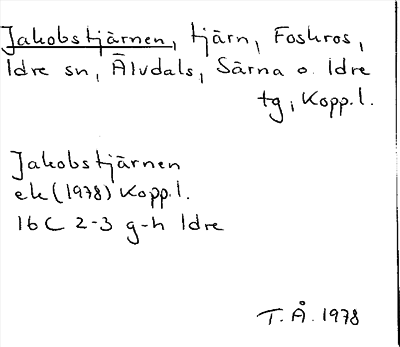 Jakobstjärnen, tjärn, Foskros,
Idre sn, Älvdals, Särna o. Idre
tg, Kopp.l.
Jakobstjärnen
ek (1978) Kopp.l.
16 C 2-3 g-h Idre
T. Å. 1978